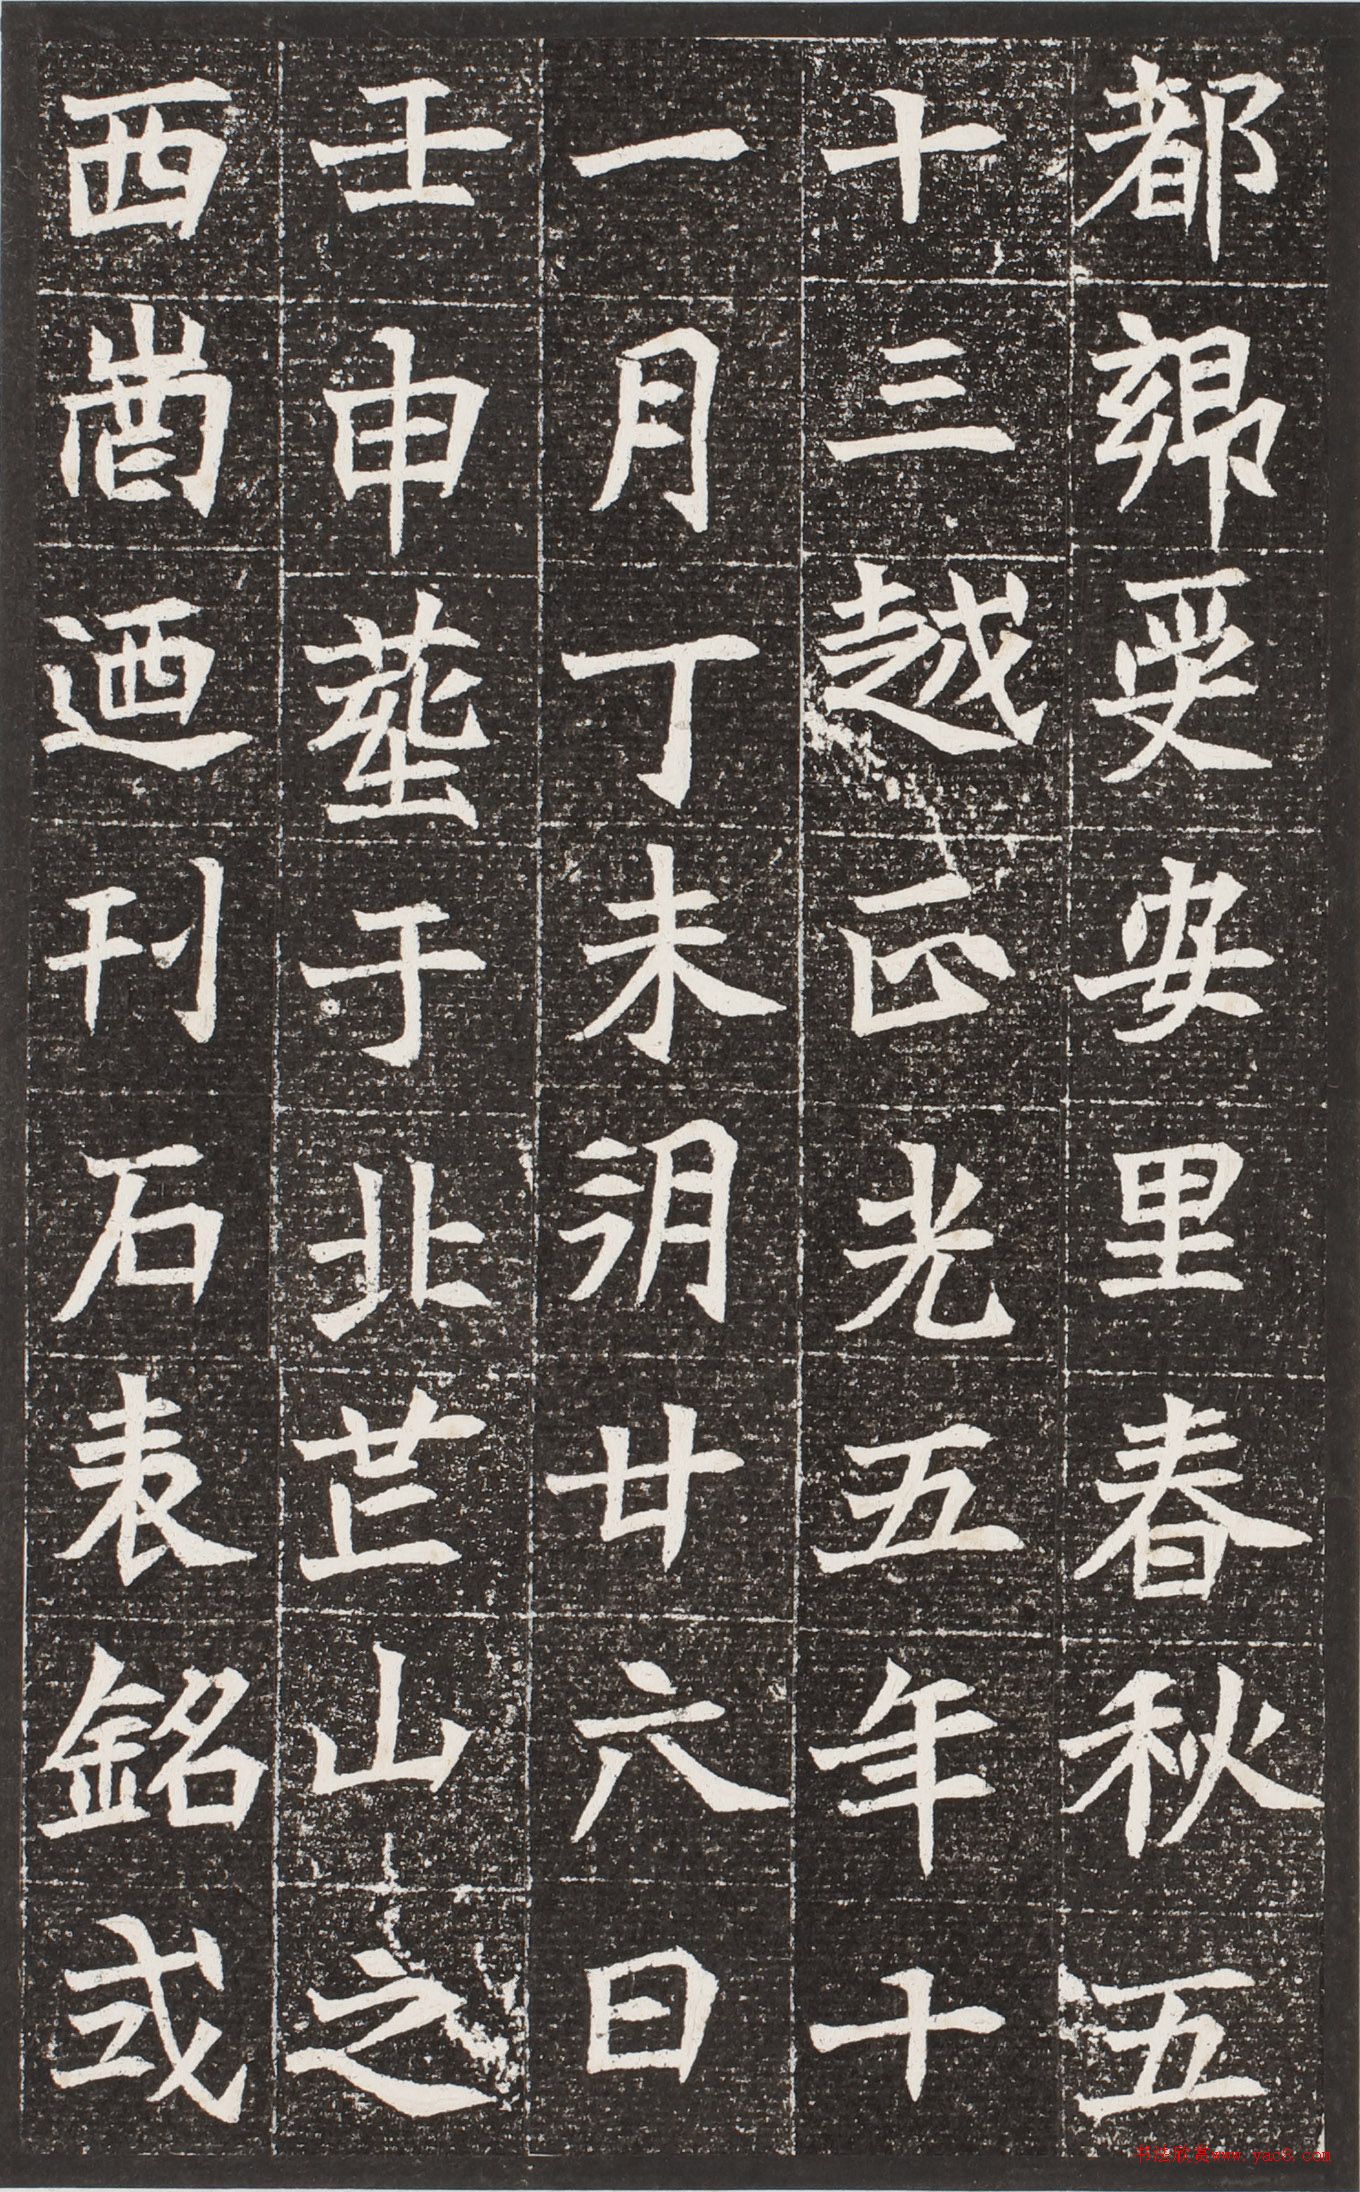 都鄉受安里春秋五
十三越正光五年十
一月丁未朔廿六日
壬申葬于北芒山之
西崗迺刊石表銘式
书法欣赏www.yac8.com